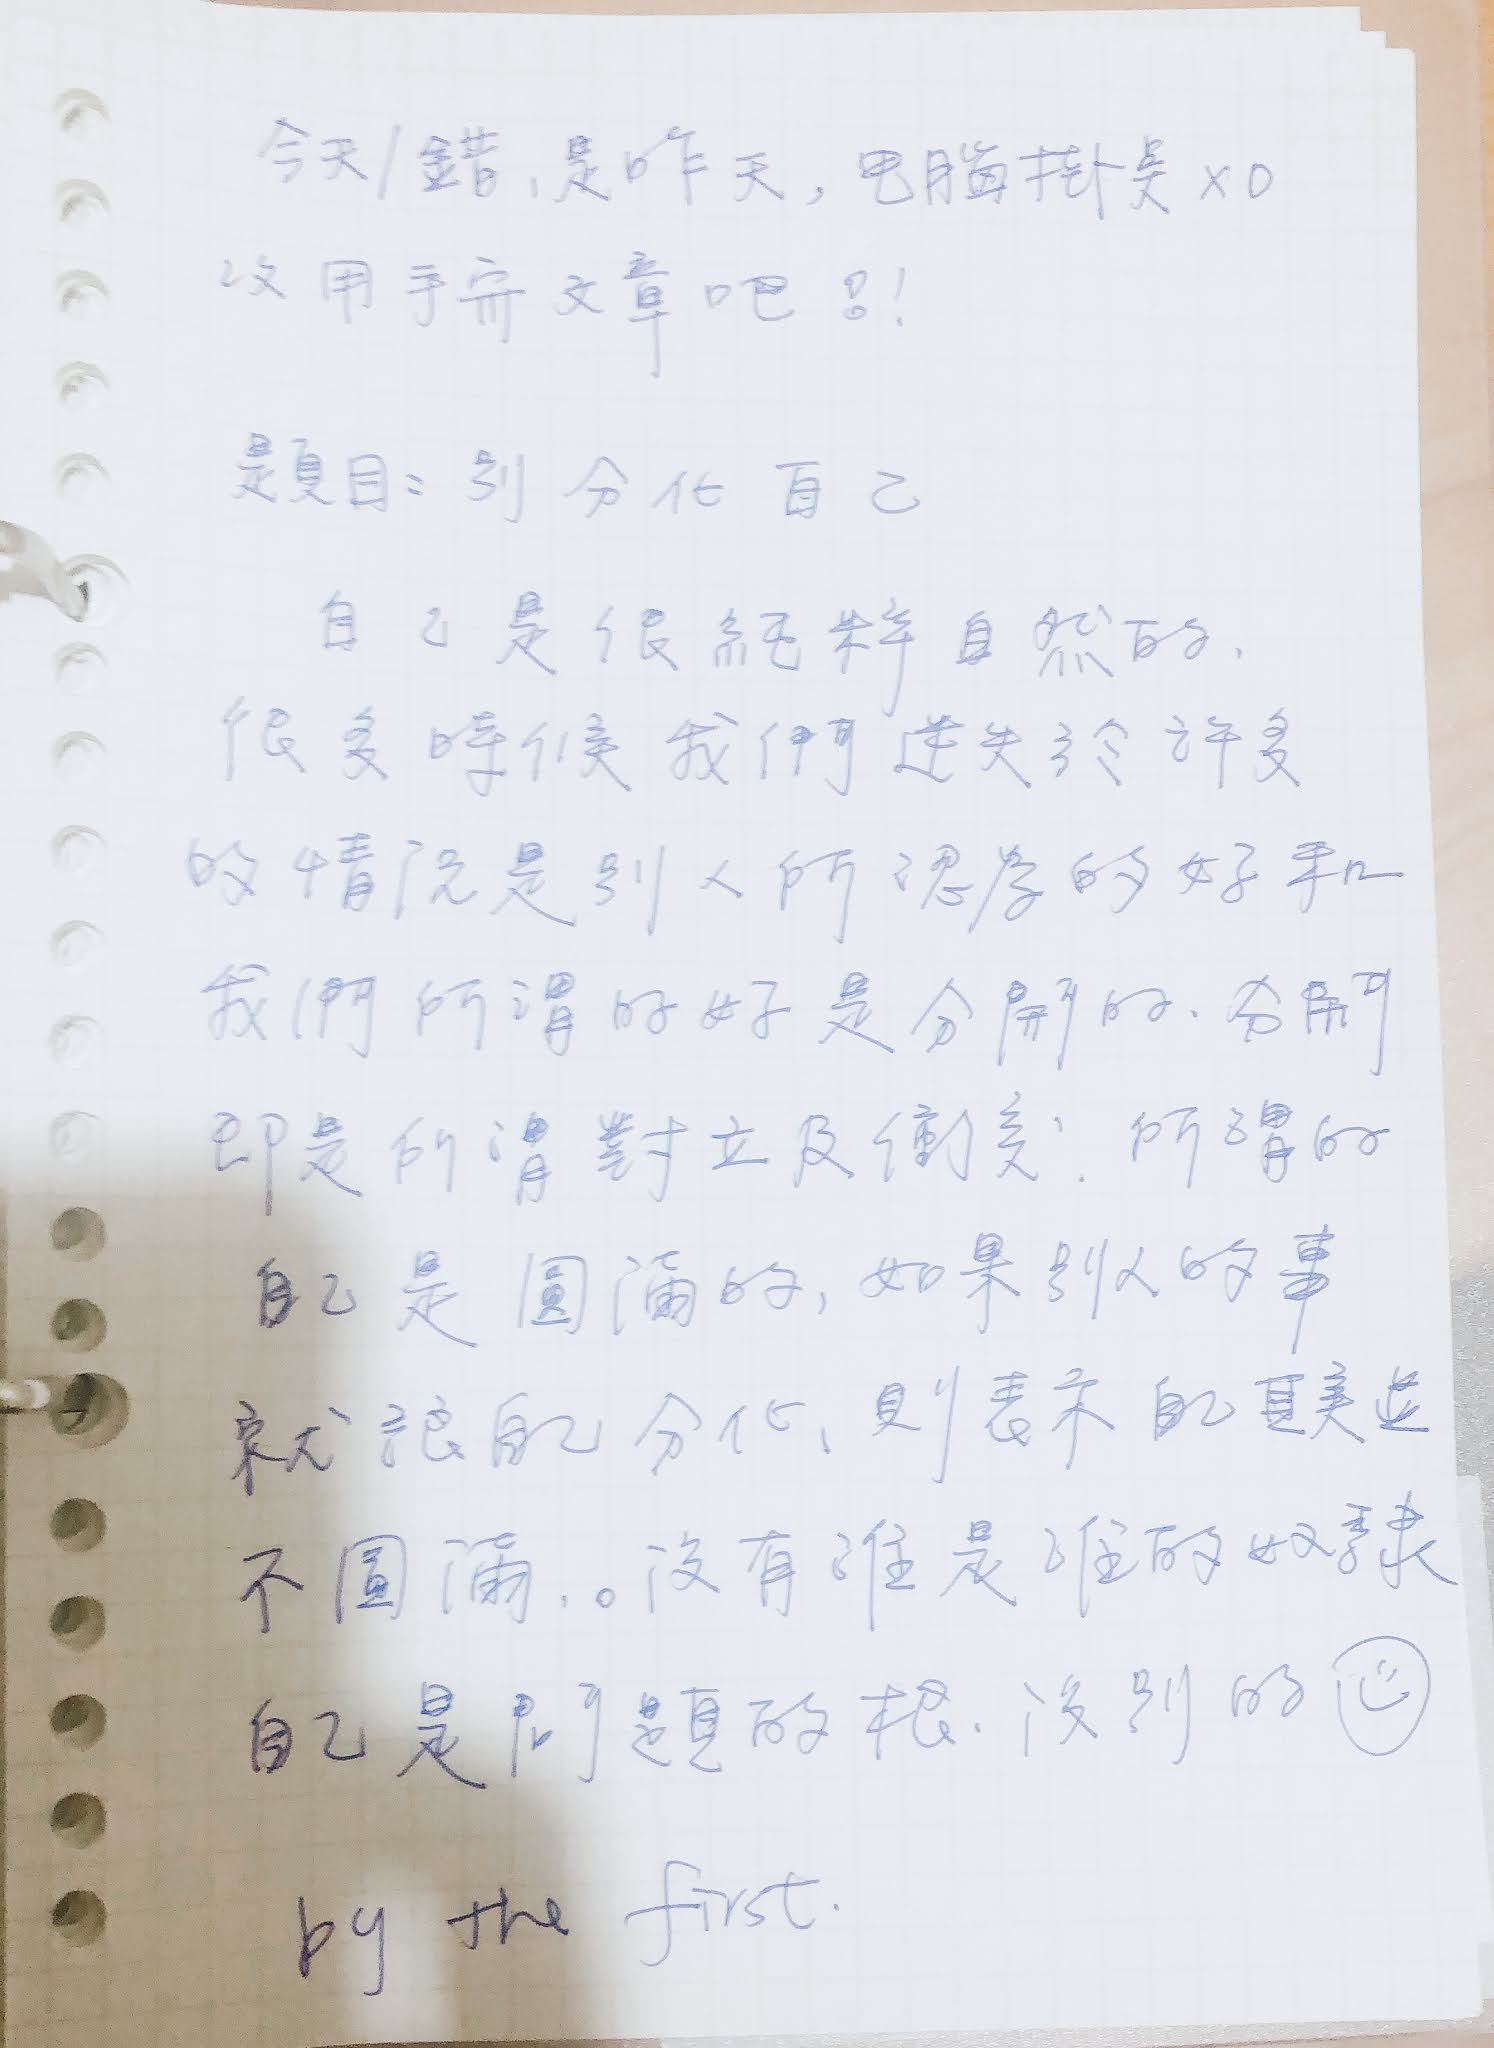 今天/錯、是昨天,电脑掛矣 x0
改用手寫文章吧!
題目:別分化自己
自己是很純粹自然的、
很多時候我們迷失於許多
的情況是別人所認為的好和
我們所謂的好是分開的、分開
即是所謂對立及衝突;所謂的
自己是圓滿的,如果別人的事
就讓自己分化、則表示自己真是
不圓滿.。沒有誰是誰的奴隸
自己是問題的根、沒別的
by the first.